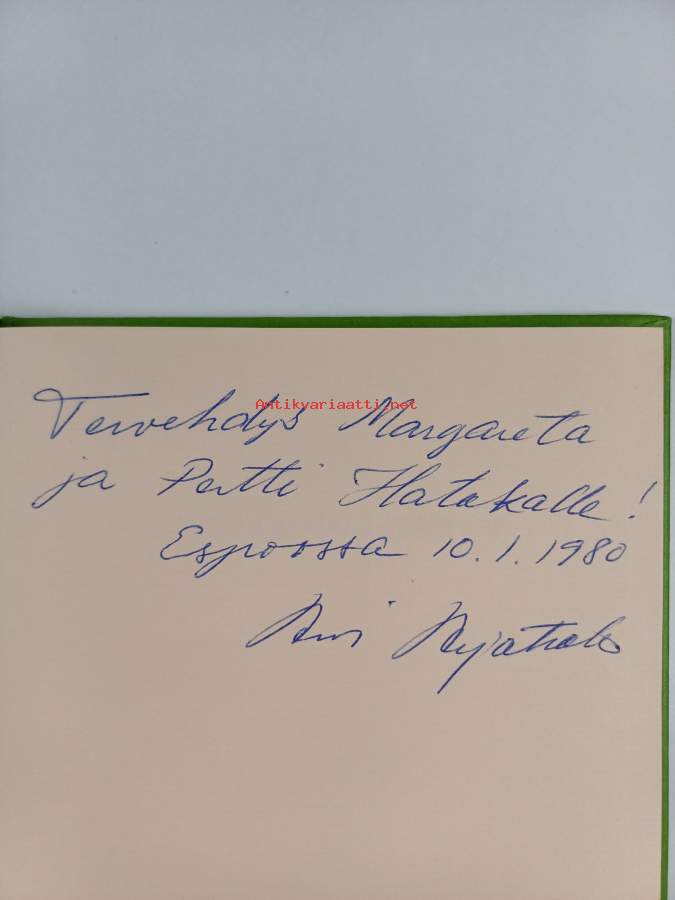 Antikvariaatti.net
Tervehdys Margareta
ja Pertti Hatakalle!
Espoossa 10.1.1980